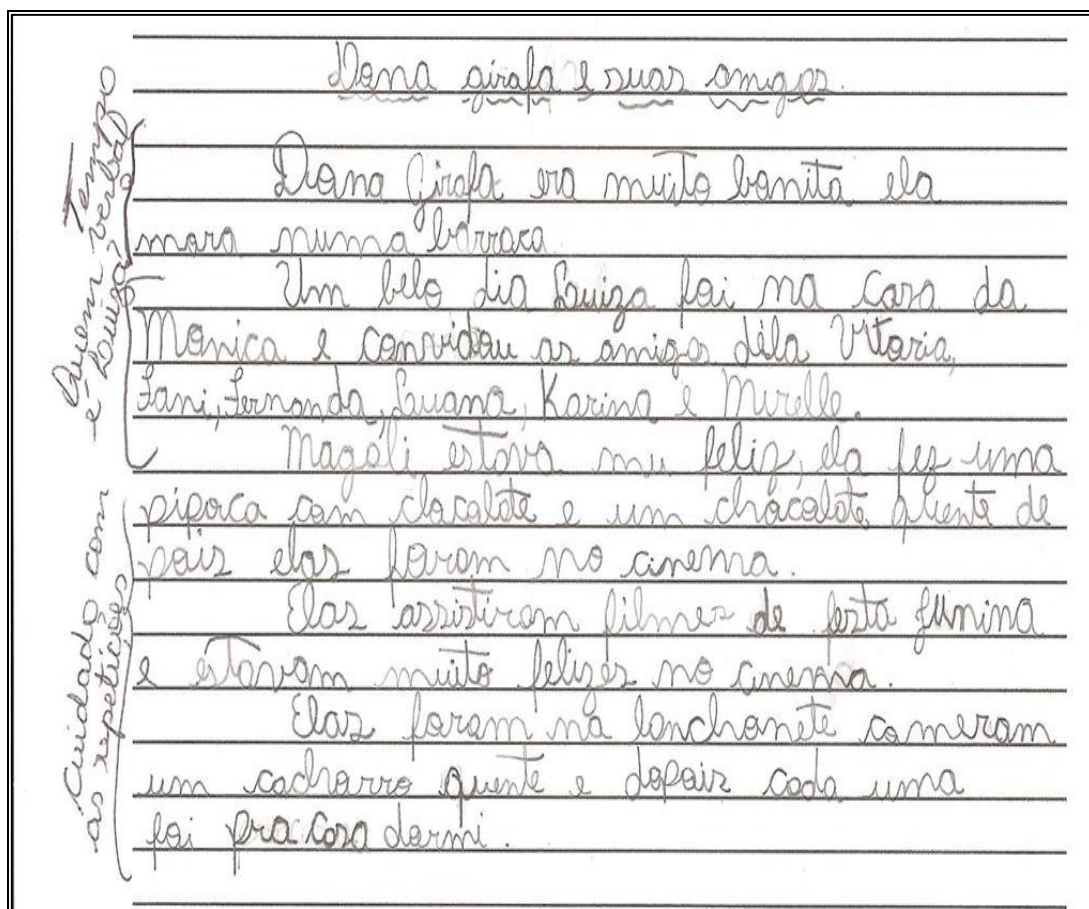 Dona girafa e suas amigas.
Dona Girafa era muito bonita ela
mora numa barraca
Um belo dia Luiza foi na casa da
Monica e convidou as amigas dela Vitaria,
Fani, Fernanda, Luana, Karina e Mirelle.
Magali estava mu feliz, ela fez uma
pipoca com clocolote e um chacolote quente de
pois elas foram no cinema.
Elas assistiram filmes de festa junina
e estavam muito felizes no cinema.
Elas foram na lanchonete comeram
um cachorro quente e depois cada uma
foi pra casa dormi.
Tempo
verbal
Quem
é Louiza?
Cuidado com
as repetições